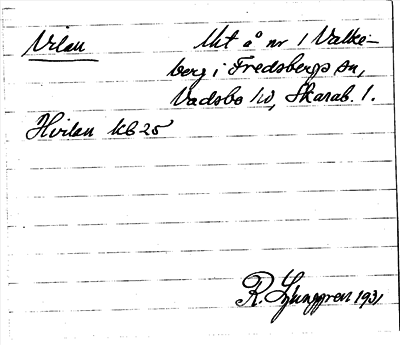 Vilan Utt å nr 1 Valke-
berg i Fredsbergs sn,
Vadsbo hd, Skarab. l.
Hvilan kb 25
R. Ljunggren 1931